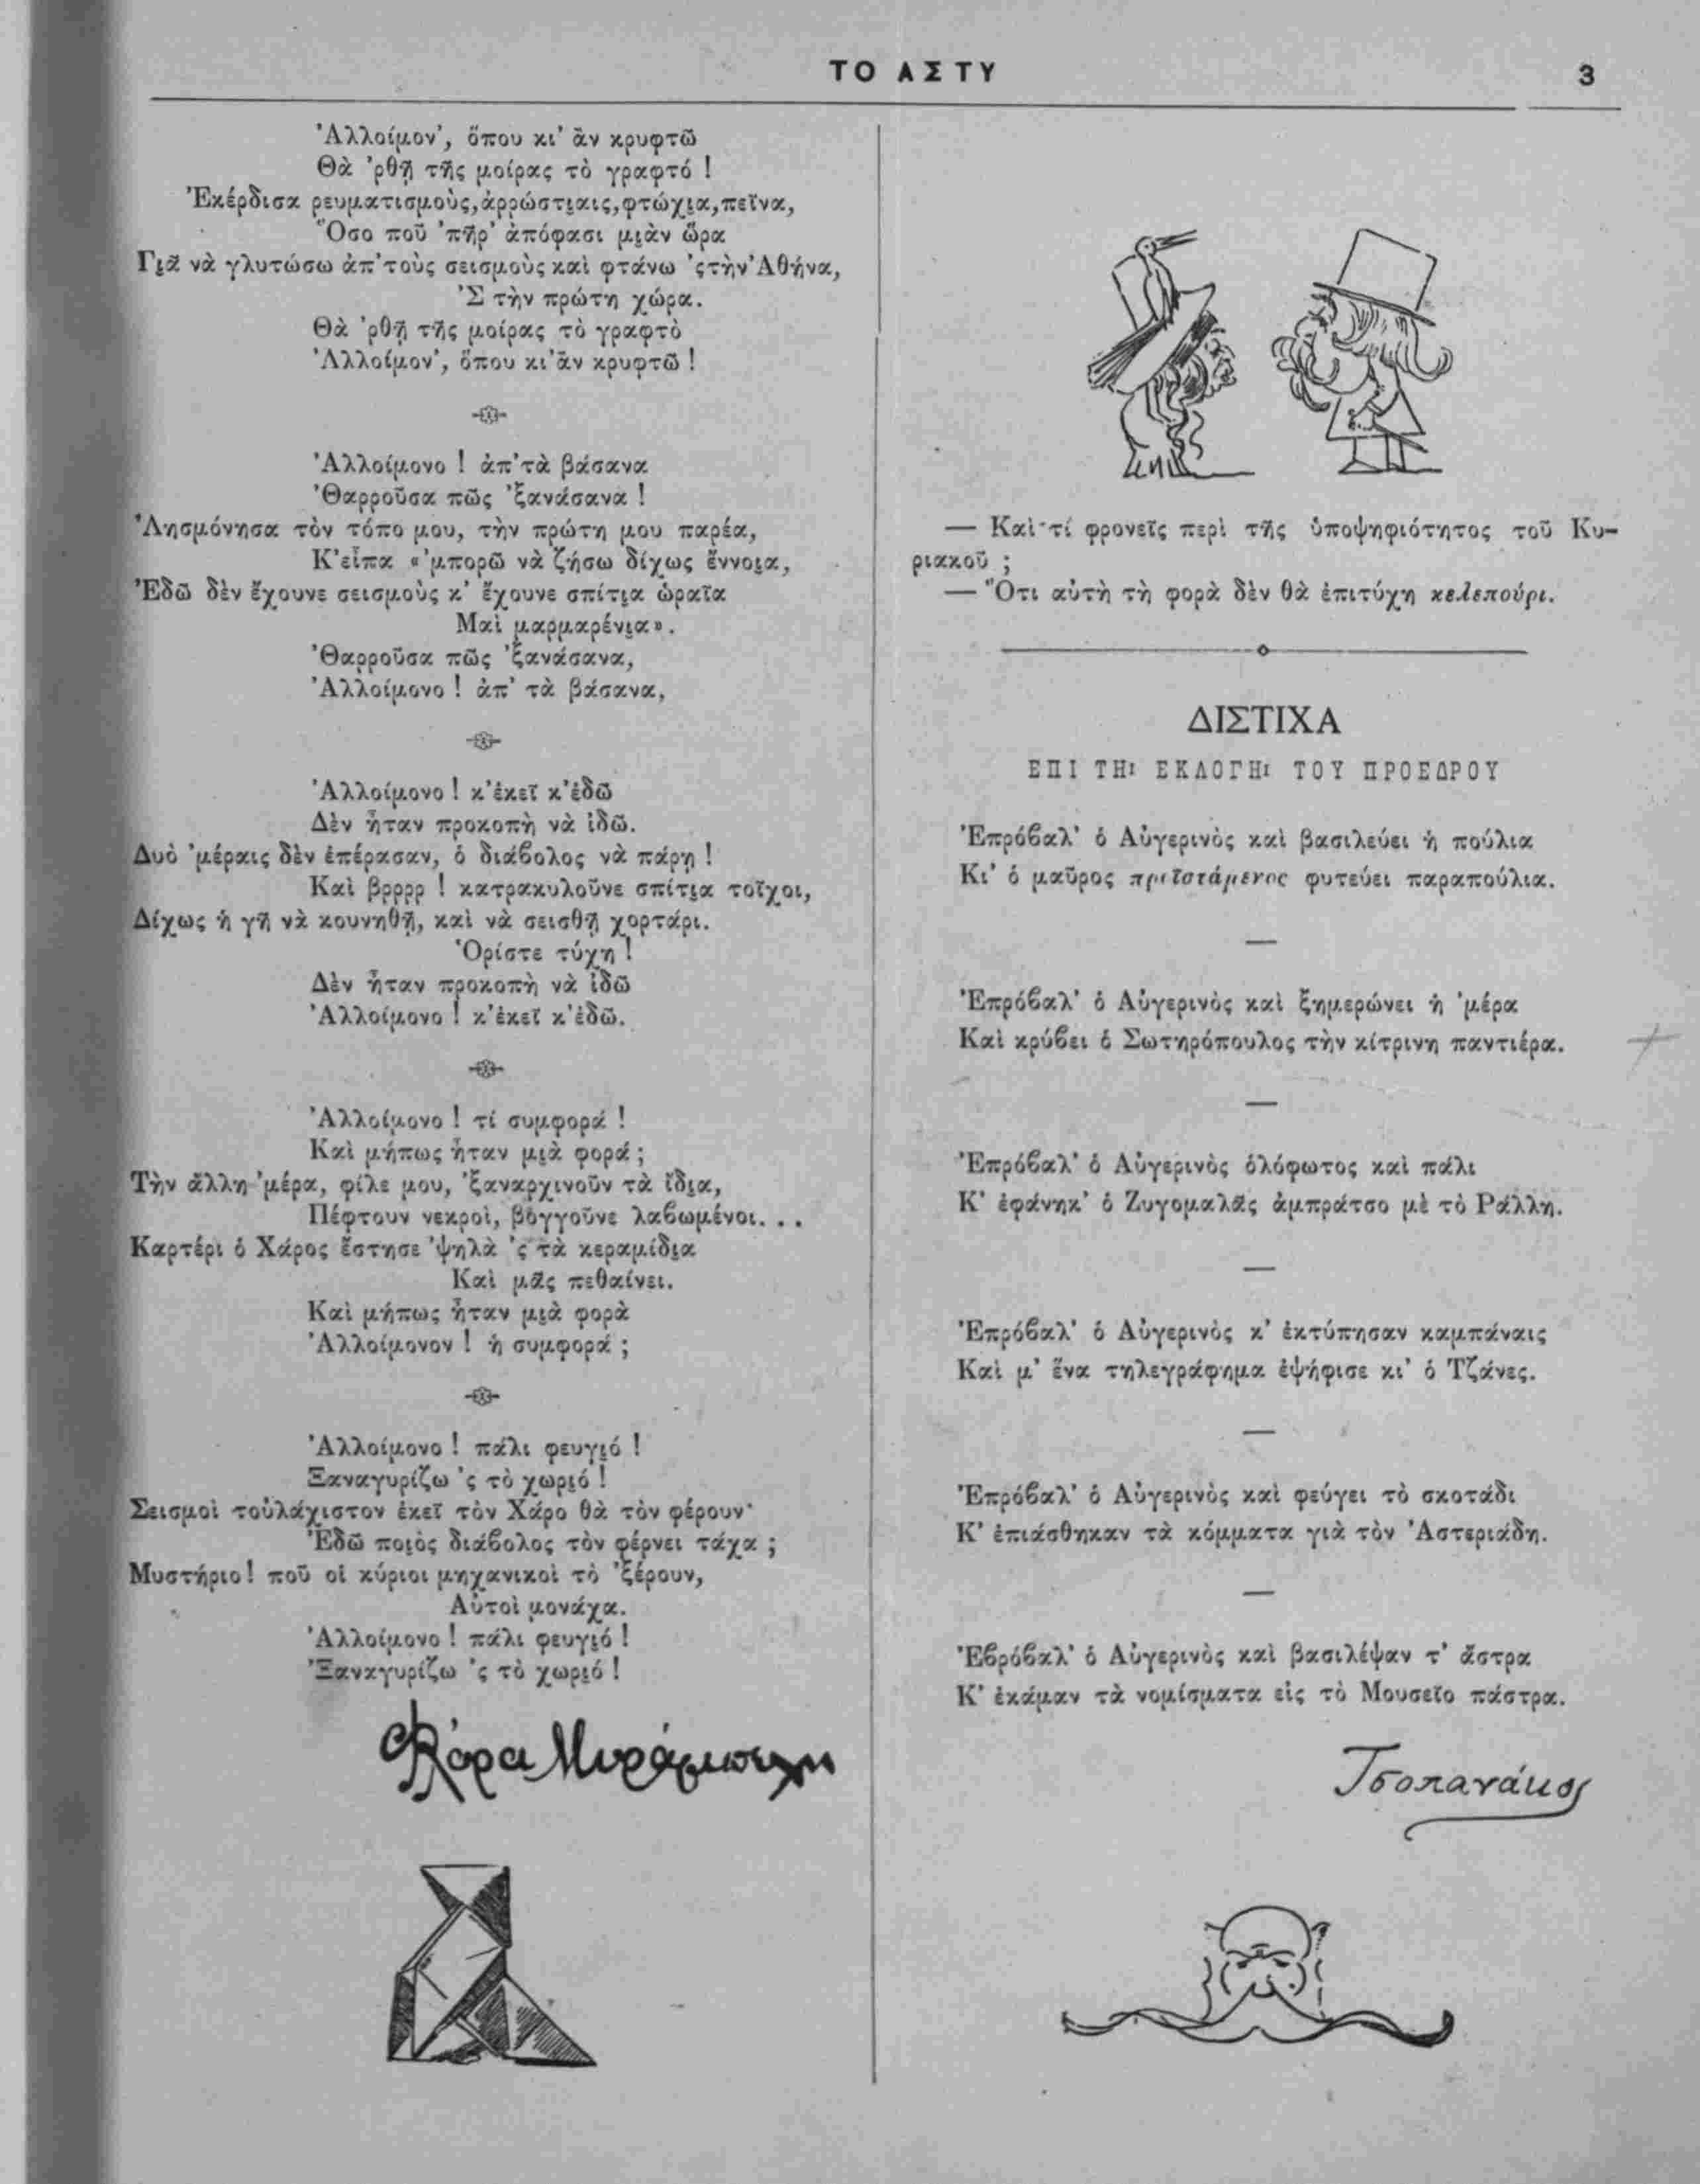 ΤΟ ΑΣΤΥ
3
'Αλλοίμον', ὅπου κι' ἂν κρυφτῶ
Θὰ 'ρθῇ τῆς μοίρας τὸ γραφτό !
Ἐκέρδισα ρευματισμοὺς,ἀρρώστι̯αις,φτώχι̯α,πεῖνα,
Ὅσο ποῦ 'πῆρ' ἀπόφασι μι̯ὰν ὥρα
Γι̯ᾶ νὰ γλυτώσω ἀπ'τοὺς σεισμοὺς καὶ φτάνω 'ςτὴν Ἀθήνα,
'Σ τὴν πρώτη χώρα.
Θὰ 'ρθῇ τῆς μοίρας τὸ γραφτὸ
Ἀλλοίμον', ὅπου κι'ἂν κρυφτῶ !
Ἀλλοίμονο ! ἀπ'τὰ βάσανα
'Θαρροῦσα πῶς 'ξανάσανα !
'Λησμόνησα τὸν τόπο μου, τὴν πρώτη μου παρέα,
Κ'εἶπα «'μπορῶ νὰ ζήσω δίχως ἔννοι̯α,
Ἐδῶ δὲν ἔχουνε σεισμοὺς κ' ἔχουνε σπίτι̯α ὡραῖα
Μαὶ μαρμαρένι̯α».
'Θαρροῦσα πῶς 'ξανάσανα,
Ἀλλοίμονο ! ἀπ' τὰ βάσανα,
Ἀλλοίμονο ! κ'ἐκεῖ κ'ἐδῶ
Δὲν ἦταν προκοπὴ νὰ ἰδῶ.
Δυὸ 'μέραις δὲν ἐπέρασαν, ὁ διάβολος νὰ πάρῃ !
Καὶ βρρρρ ! κατρακυλοῦνε σπίτι̯α τοῖχοι,
Δίχως ἡ γῆ νὰ κουνηθῇ, καὶ νὰ σεισθῇ χορτάρι.
Ὁρίστε τύχη !
Δὲν ἦταν προκοπὴ νὰ ἰδῶ
Ἀλλοίμονο ! κ'ἐκεῖ κ'ἐδῶ.
Ἀλλοίμονο ! τί συμφορά !
Καὶ μήπως ἦταν μι̯ὰ φορά ;
Τὴν ἄλλη 'μέρα, φίλε μου, 'ξαναρχινοῦν τὰ ἴδι̯α,
Πέφτουν νεκροὶ, βογγοῦνε λαβωμένοι. . .
Καρτέρι ὁ Χάρος ἔστησε 'ψηλὰ 'ς τὰ κεραμίδι̯α
Καὶ μᾶς πεθαίνει.
Καὶ μήπως ἦταν μι̯ὰ φορὰ
Ἀλλοίμονον ! ἡ συμφορά ;
Ἀλλοίμονο ! πάλι φευγι̯ό !
Ξαναγυρίζω 'ς τὸ χωρι̯ό !
Σεισμοὶ τοὐλάχιστον ἐκεῖ τὸν Χάρο θὰ τὸν φέρουν·
Ἐδῶ ποι̯ὸς διάβολος τὸν φέρνει τάχα ;
Μυστήριο! ποῦ οἱ κύριοι μηχανικοὶ τὸ 'ξέρουν,
Αὐτοὶ μονάχα.
Ἀλλοίμονο ! πάλι φευγι̯ό !
'Ξαναγυρίζω 'ς τὸ χωρι̯ό !
— Καὶ τί φρονεῖς περὶ τῆς ὑποψηφιότητος τοῦ Κυ-
ριακοῦ ;
— Ὅτι αὐτὴ τὴ φορὰ δὲν θὰ ἐπιτύχῃ κελεπούρι.
ΔΙΣΤΙΧΑ
ΕΠΙ ΤΗι ΕΚΛΟΓΗι ΤΟΥ ΠΡΟΕΔΡΟΥ
Ἐπρόβαλ' ὁ Αὐγερινὸς καὶ βασιλεύει ἡ πούλια
Κι' ὁ μαῦρος πρεϊστάμενος φυτεύει παραπούλια.
—
Ἐπρόβαλ' ὁ Αὐγερινὸς καὶ ξημερώνει ἡ 'μέρα
Καὶ κρύβει ὁ Σωτηρόπουλος τὴν κίτρινη παντιέρα.
—
Ἐπρόβαλ' ὁ Αὐγερινὸς ὁλόφωτος καὶ πάλι
Κ' ἐφάνηκ' ὁ Ζυγομαλᾶς ἀμπράτσο μὲ τὸ Ράλλη.
—
Ἐπρόβαλ' ὁ Αὐγερινὸς κ' ἐκτύπησαν καμπάναις
Καὶ μ' ἕνα τηλεγράφημα ἐψήφισε κι' ὁ Τζάνες.
—
Ἐπρόβαλ' ὁ Αὐγερινὸς καὶ φεύγει τὸ σκοτάδι
Κ' ἐπιάσθηκαν τὰ κόμματα γιὰ τὸν Ἀστεριάδη.
—
Ἐβρόβαλ' ὁ Αὐγερινὸς καὶ βασιλέψαν τ' ἄστρα
Κ' ἐκάμαν τὰ νομίσματα εἰς τὸ Μουσεῖο πάστρα.
Τσοπανάκος